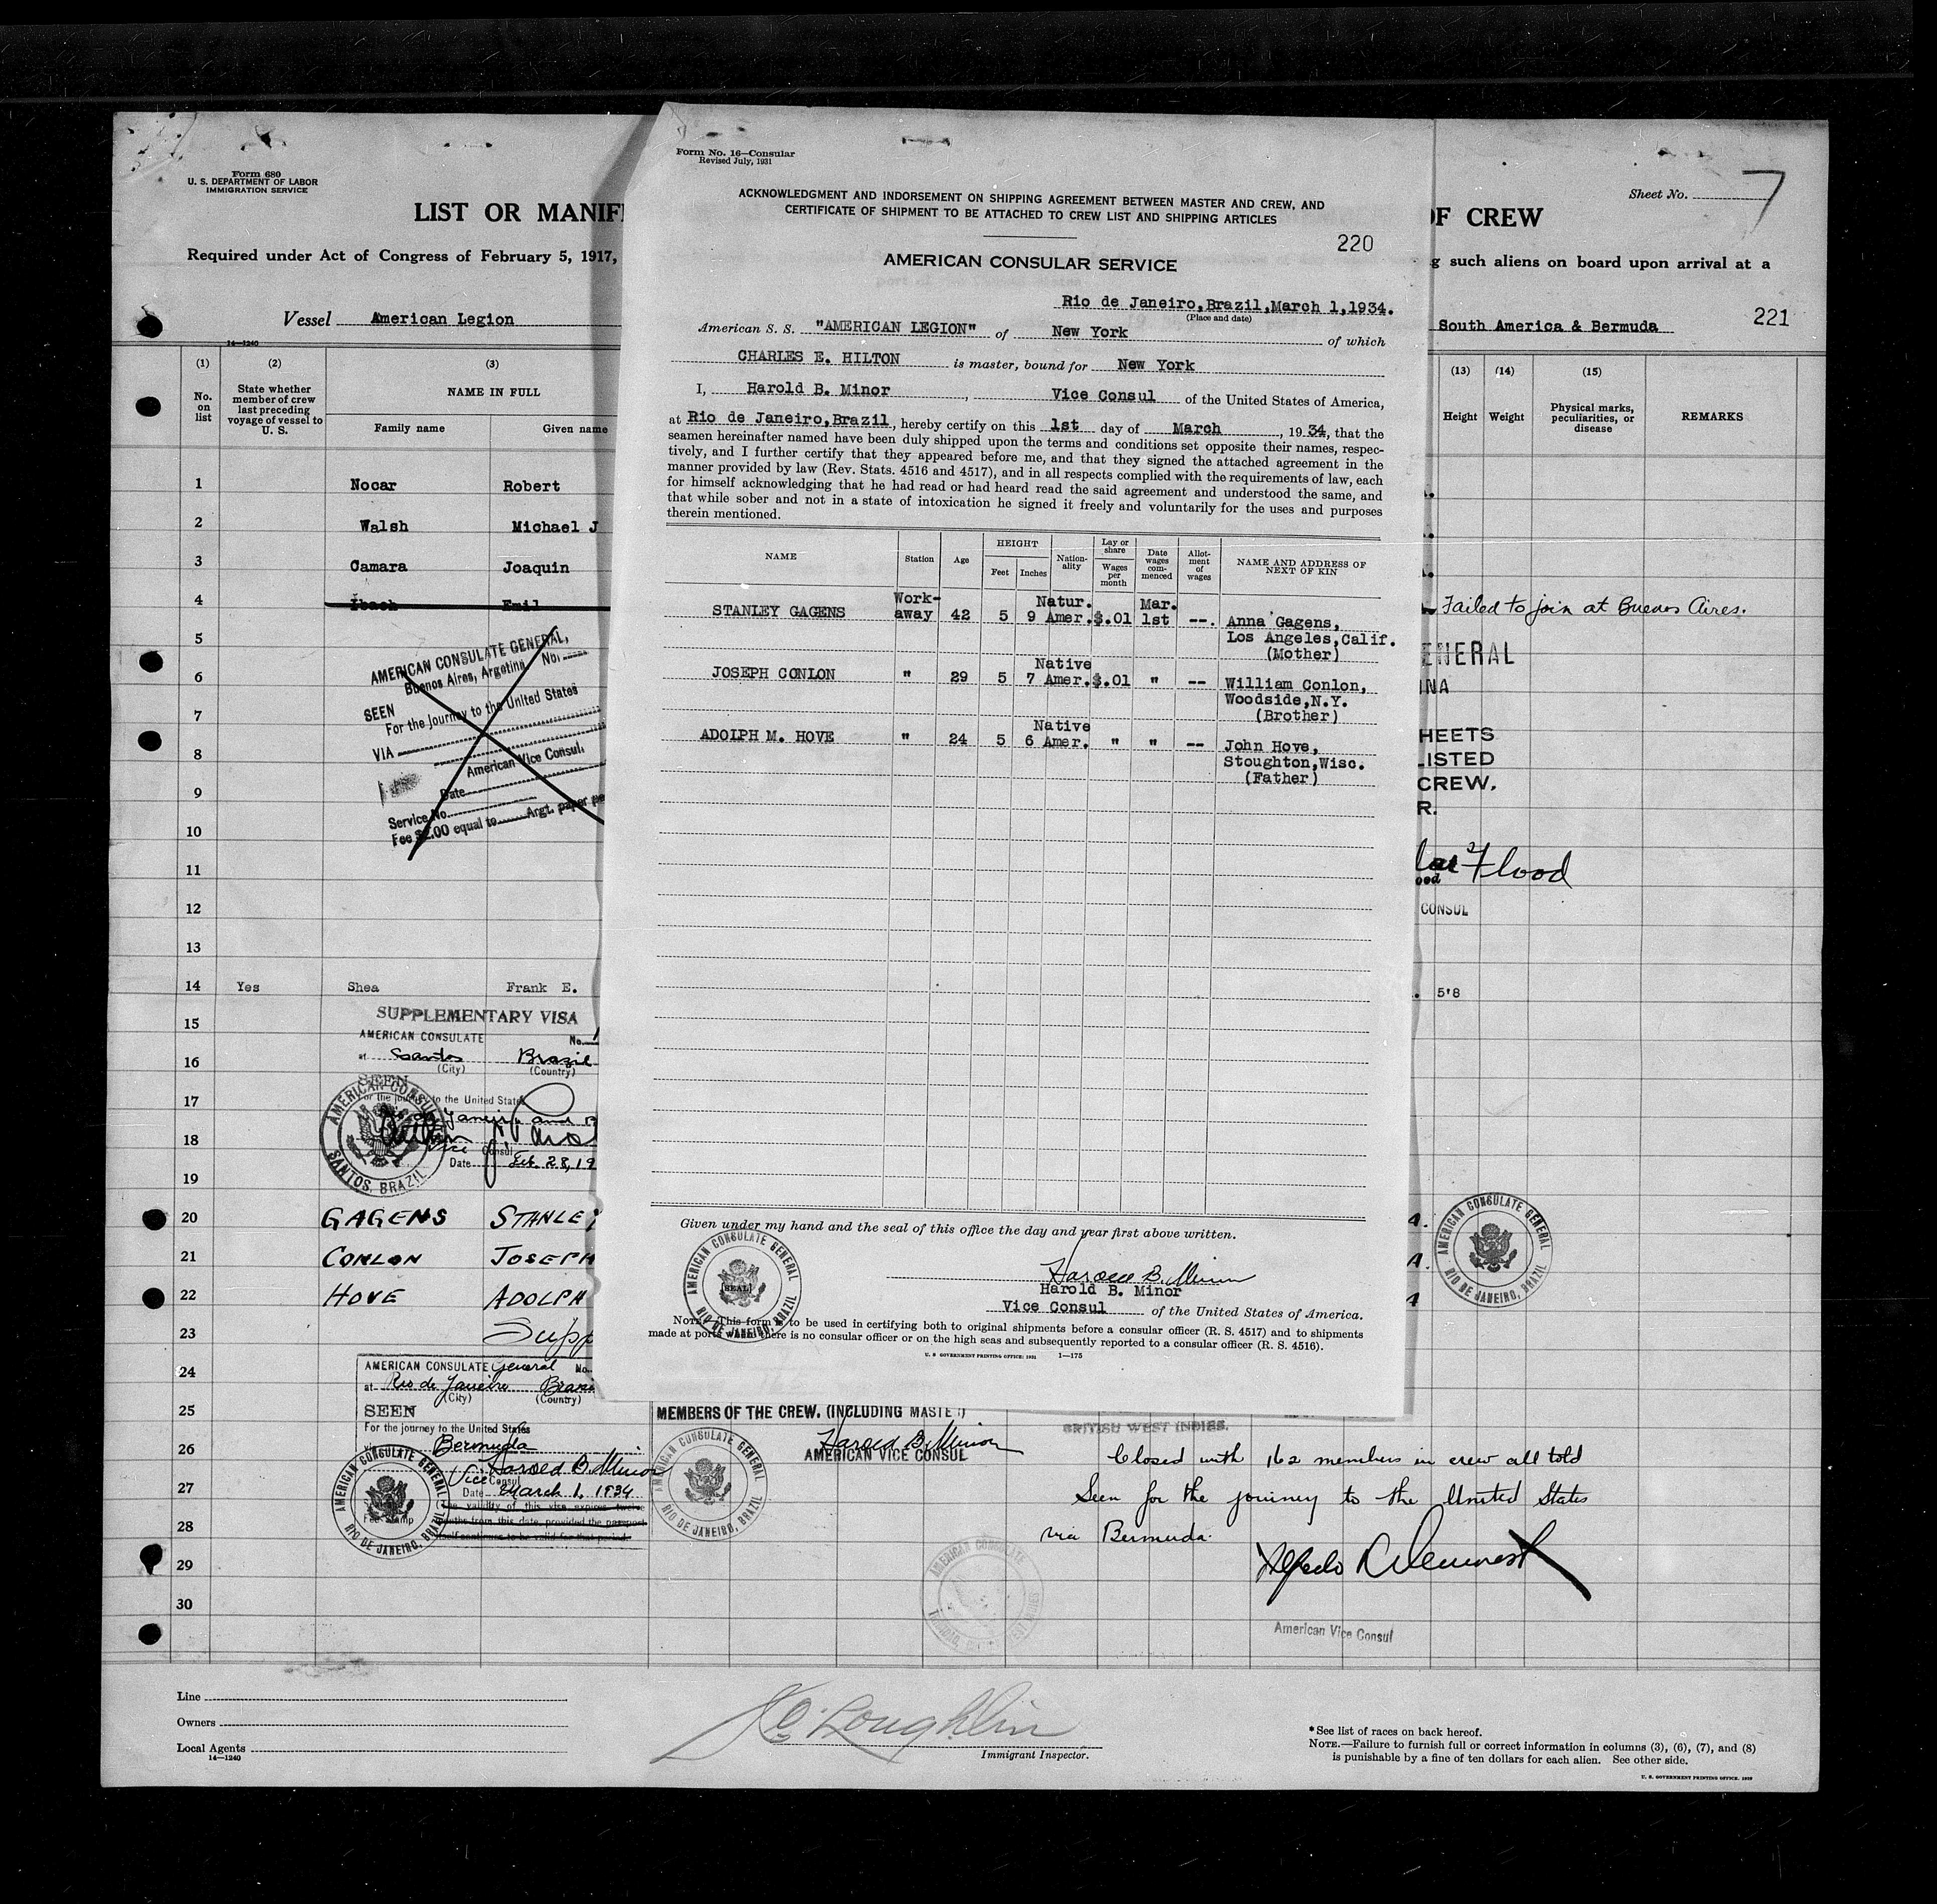 Form 680
U. S. DEPARTMENT OF LABOR
IMMIGRATION SERVICE
LIST OR MANIF
Required under Act of Congress of February 5, 1917,
Vessel American Legion
14—1240
(1)
(2)
(3)
No. on list
State whether member of crew last preceding voyage of vessel to U. S.
NAME IN FULL
Family name
Given name
1 Nocar Robert
2 Walsh Michael J
3 Camara Joaquin
4 Ibach Emil
5
6
7
8
9
10
11
12
13
AMERICAN CONSULATE GENERAL,
Buenos Aires, Argetina No.
SEEN
For the journey to the United States
VIA
American Vice Consul.
Date
Service No.
Fee $2.00 equal to Argt. paper pe
14 Yes Shea Frank E.
15
16
17
18
19
SUPPLEMENTARY VISA
AMERICAN CONSULATE No.
at Santos Brazil
(City) (Country)
SEEN
For the journey to the United States
Vice Consul
Date Feb. 28, 19
AMERICAN CONSUL
SANTOS, BRAZIL
20 GAGENS STANLEY
21 CONLON JOSEPH
22 HOVE ADOLPH
23 Supp
24
25
26
27
28
29
30
AMERICAN CONSULATE General No.
at Rio de Janeiro Brazi
(City) (Country)
SEEN
For the journey to the United States
Bermuda
Harold B. Minor
Vice Consul
Date March 1, 1934
(The validity of this visa expires twelve
months from this date, provided the passport
itself continues to be valid for that period.
AMERICAN CONSULATE GENERAL
RIO DE JANEIRO, BRAZIL
Line
Owners
Local Agents
14—1240
Form No. 16—Consular
Revised July, 1931
ACKNOWLEDGMENT AND INDORSEMENT ON SHIPPING AGREEMENT BETWEEN MASTER AND CREW, AND
CERTIFICATE OF SHIPMENT TO BE ATTACHED TO CREW LIST AND SHIPPING ARTICLES
220
AMERICAN CONSULAR SERVICE
Rio de Janeiro,Brazil,March 1,1934.
(Place and date)
American S. S. "AMERICAN LEGION" of New York of which
CHARLES E. HILTON is master, bound for New York
I, Harold B. Minor, Vice Consul of the United States of America,
at Rio de Janeiro,Brazil, hereby certify on this 1st day of March, 1934, that the
seamen hereinafter named have been duly shipped upon the terms and conditions set opposite their names, respec-
tively, and I further certify that they appeared before me, and that they signed the attached agreement in the
manner provided by law (Rev. Stats. 4516 and 4517), and in all respects complied with the requirements of law, each
for himself acknowledging that he had read or had heard read the said agreement and understood the same, and
that while sober and not in a state of intoxication he signed it freely and voluntarily for the uses and purposes
therein mentioned.
NAME
Station
Age
HEIGHT
Feet
Inches
Nation-ality
Lay or share
Wages per month
Date wages com-menced
Allot-ment of wages
NAME AND ADDRESS OF NEXT OF KIN
Work- Natur. Mar.
STANLEY GAGENS away 42 5 9 Amer. $.01 1st --. Anna Gagens,
Los Angeles,Calif.
(Mother)
Native
JOSEPH CONLON " 29 5 7 Amer. $.01 " -- William Conlon,
Woodside,N.Y.
(Brother)
Native
ADOLPH M. HOVE " 24 5 6 Amer. " " -- John Hove,
Stoughton,Wisc.
(Father)
Given under my hand and the seal of this office the day and year first above written.
AMERICAN CONSULATE GENERAL
RIO DE JANEIRO, BRAZIL
[SEAL]
Harold B. Minor
Harold B. Minor
Vice Consul of the United States of America.
NOTE.—This form is to be used in certifying both to original shipments before a consular officer (R. S. 4517) and to shipments
made at ports where there is no consular officer or on the high seas and subsequently reported to a consular officer (R. S. 4516).
U. S. GOVERNMENT PRINTING OFFICE: 1931 1—175
MEMBERS OF THE CREW. (INCLUDING MASTER)
Harold B. Minor
AMERICAN VICE CONSUL
AMERICAN CONSULATE GENERAL
RIO DE JANEIRO, BRAZIL
BRITISH WEST INDIES.
Closed with 162 members in crew all told
Seen for the journey to the United States
via Bermuda.
American Vice Consul
AMERICAN CONSULATE
Immigrant Inspector.
Sheet No. 7
OF CREW
g such aliens on board upon arrival at a
South America & Bermuda
221
(13)
(14)
(15)
Height
Weight
Physical marks, peculiarities, or disease
REMARKS
Failed to join at Buenos Aires.
ENERAL
INA
HEETS
LISTED
CREW.
R.
Flood
ood
CONSUL
5'8
A.
A.
A
AMERICAN CONSULATE GENERAL
RIO DE JANEIRO, BRAZIL
*See list of races on back hereof.
NOTE.—Failure to furnish full or correct information in columns (3), (6), (7), and (8)
is punishable by a fine of ten dollars for each alien. See other side.
U. S. GOVERNMENT PRINTING OFFICE. 1929